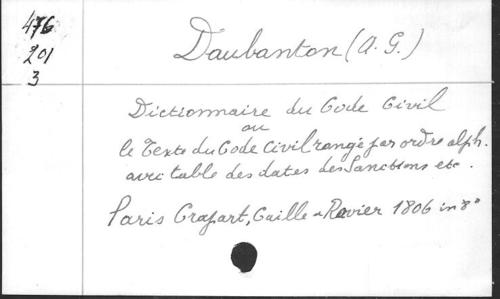 476
201
3
Daubanton (A. G.)
Dictionnaire du Code Civil
ou
le Texte du Code Civil rangé par ordre alph.
avec table des dates des Sanctions etc.
Paris Crapart, Caille & Ravier 1806 in 8°